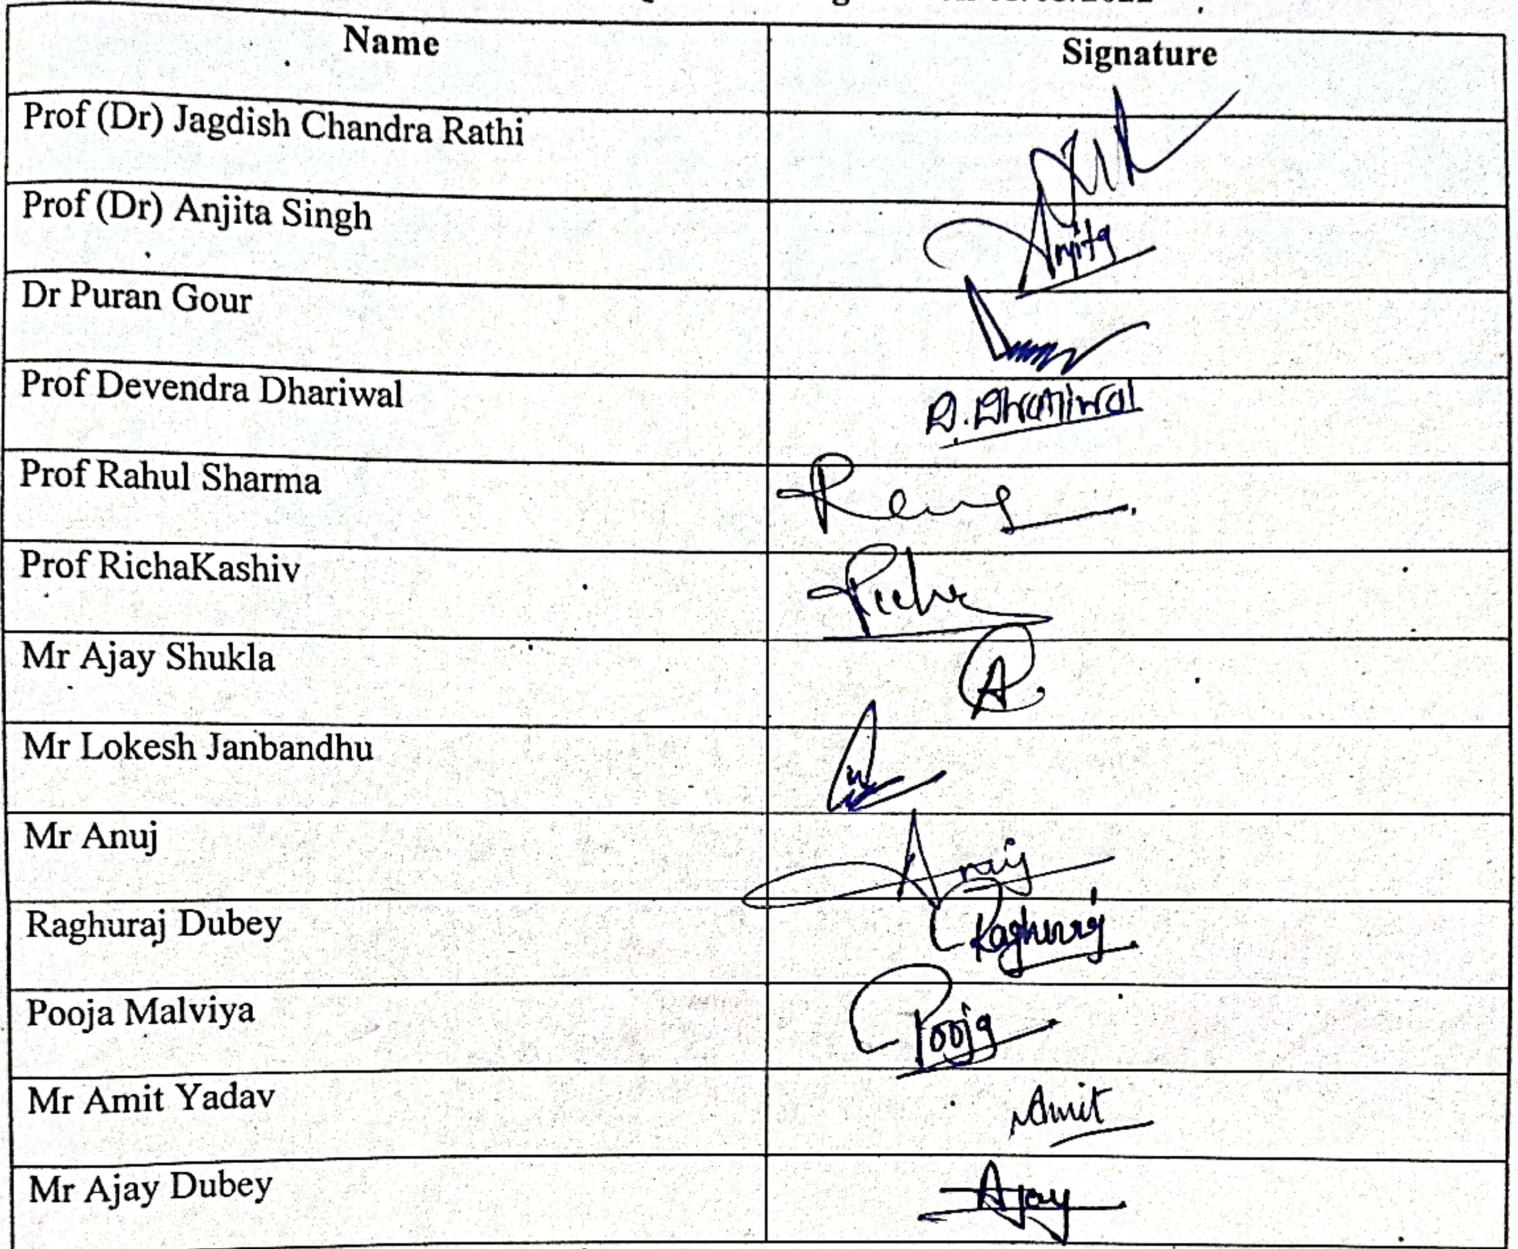 Name Signature
Prof (Dr) Jagdish Chandra Rathi
Prof (Dr) Anjita Singh Anjita
Dr Puran Gour
Prof Devendra Dhariwal D. Dhariwal
Prof Rahul Sharma
Prof RichaKashiv Richa
Mr Ajay Shukla A
Mr Lokesh Janbandhu
Mr Anuj Anuj
Raghuraj Dubey Raghuraj
Pooja Malviya Pooja
Mr Amit Yadav Amit
Mr Ajay Dubey Ajay